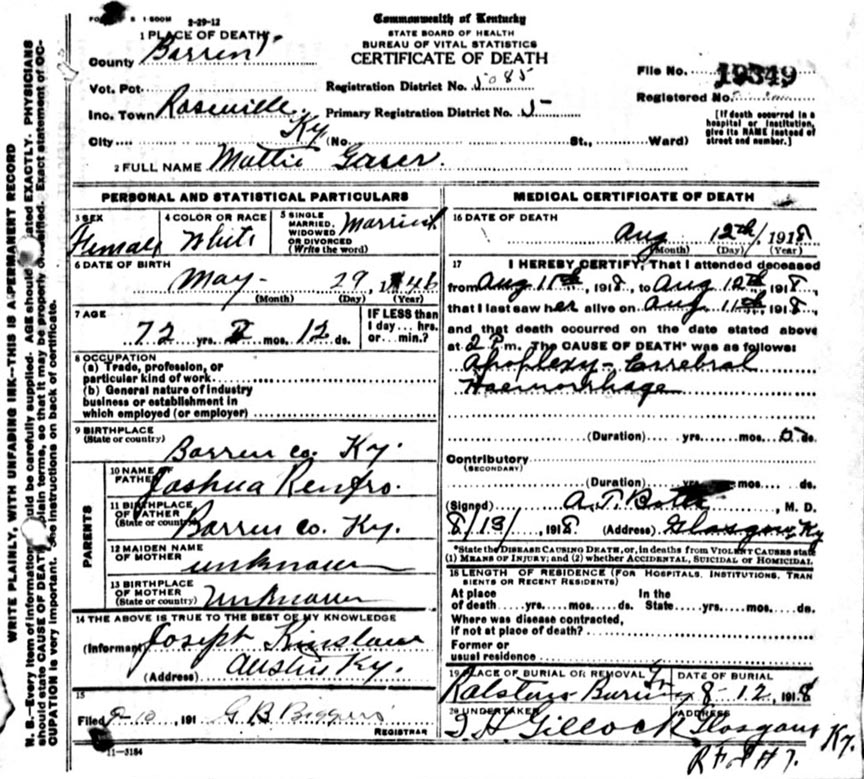 2-29-12
Commonwealth of Kentucky
STATE BOARD OF HEALTH
BUREAU OF VITAL STATISTICS
CERTIFICATE OF DEATH
1 PLACE OF DEATH
County Barren
Vot. Pct.
Inc. Town Roseville Ky
City (No. St., Ward)
Registration District No. 5085
Primary Registration District No. 5
File No. 19349
Registered No.
[If death occurred in a
hospital or institution,
give its NAME instead of
street and number.]
2 FULL NAME Mattie Gaser.
PERSONAL AND STATISTICAL PARTICULARS
3 SEX Female
4 COLOR OR RACE White
5 SINGLE MARRIED, WIDOWED OR DIVORCED (Write the word) Married
6 DATE OF BIRTH
May 29, 1846
(Month) (Day) (Year)
7 AGE
72 yrs. 2 mos. 12 ds.
IF LESS than
1 day... hrs.
or... min.?
8 OCCUPATION
(a) Trade, profession, or
particular kind of work
(b) General nature of industry
business or establishment in
which employed (or employer)
9 BIRTHPLACE
(State or country) Barren co. Ky.
PARENTS
10 NAME OF FATHER Joshua Renfro.
11 BIRTHPLACE OF FATHER (State or country) Barren co. Ky.
12 MAIDEN NAME OF MOTHER unknown
13 BIRTHPLACE OF MOTHER (State or country) unknown
14 THE ABOVE IS TRUE TO THE BEST OF MY KNOWLEDGE
(Informant) Joseph Kinslow
(Address) Austin Ky.
15
Filed 191 G B Biggers
REGISTRAR
11-3184
MEDICAL CERTIFICATE OF DEATH
16 DATE OF DEATH
Aug 12th, 1918
(Month) (Day) (Year)
17 I HEREBY CERTIFY, That I attended deceased
from Aug 11th, 1918, to Aug 12th, 1918,
that I last saw her alive on Aug 11th, 1918,
and that death occurred on the date stated above
at 2 P.m. The CAUSE OF DEATH* was as follows:
Apoplexy - Cerrebral
Haemorrhage
(Duration) yrs. mos. ds.
Contributory
(SECONDARY)
(Duration) yrs. mos. ds.
(Signed) A. T. Botts, M. D.
8/13/, 1918 (Address) Glasgow, Ky
*State the DISEASE CAUSING DEATH, or, in deaths from VIOLENT CAUSES state
(1) MEANS OF INJURY; and (2) whether ACCIDENTAL, SUICIDAL or HOMICIDAL
18 LENGTH OF RESIDENCE (FOR HOSPITALS, INSTITUTIONS, TRAN
SIENTS OR RECENT RESIDENTS)
At place of death yrs. mos. ds. In the State yrs. mos. ds.
Where was disease contracted,
if not at place of death?
Former or
usual residence
19 PLACE OF BURIAL OR REMOVAL
DATE OF BURIAL
8-12, 1918
20 UNDERTAKER
ADDRESS
Gillock Glasgow Ky.
WRITE PLAINLY, WITH UNFADING INK—THIS IS A PERMANENT RECORD
N. B.—Every item of information should be carefully supplied. AGE should be stated EXACTLY. PHYSICIANS
should state CAUSE OF DEATH in plain terms, so that it may be properly classified. Exact statement of OC-
CUPATION is very important. See instructions on back of certificate.